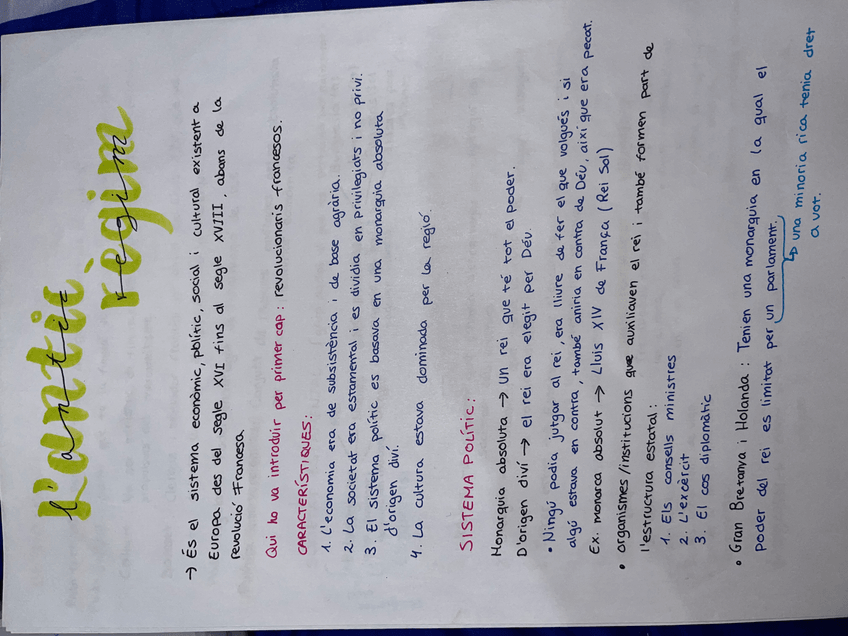 L'antic
règim
→ És el sistema econòmic, polític, social i cultural existent a
Europa des del segle XVI fins al segle XVIII, abans de la
revolució Francesa.
Qui ho va introduir per primer cop: revolucionaris francesos.
CARACTERÍSTIQUES:
1. L'economia era de subsistència i de base agrària.
2. La societat era estamental i es dividia en privilegiats i no privi.
3. El sistema polític es basava en una monarquia absoluta
d'origen diví.
4. La cultura estava dominada per la regió.
SISTEMA POLÍTIC:
Monarquia absoluta → Un rei que té tot el poder.
D'origen diví → el rei era elegit per Déu.
• Ningú podia jutjar al rei, era lliure de fer el que volgués i si
algú estava en contra, també aniria en contra de Déu, així que era pecat.
Ex. monarca absolut → Lluis XIV de França (Rei Sol)
• organismes/institucions que auxiliaven el rei i també formen part de
l'estructura estatal:
1. Els consells ministres
2. L'excèrcit
3. El cos diplomàtic
• Gran Bretanya i Holanda: Tenien una monarquia en la qual el
poder del rei es limitat per un parlament.
↳ una minoria rica tenia dret
a vot.